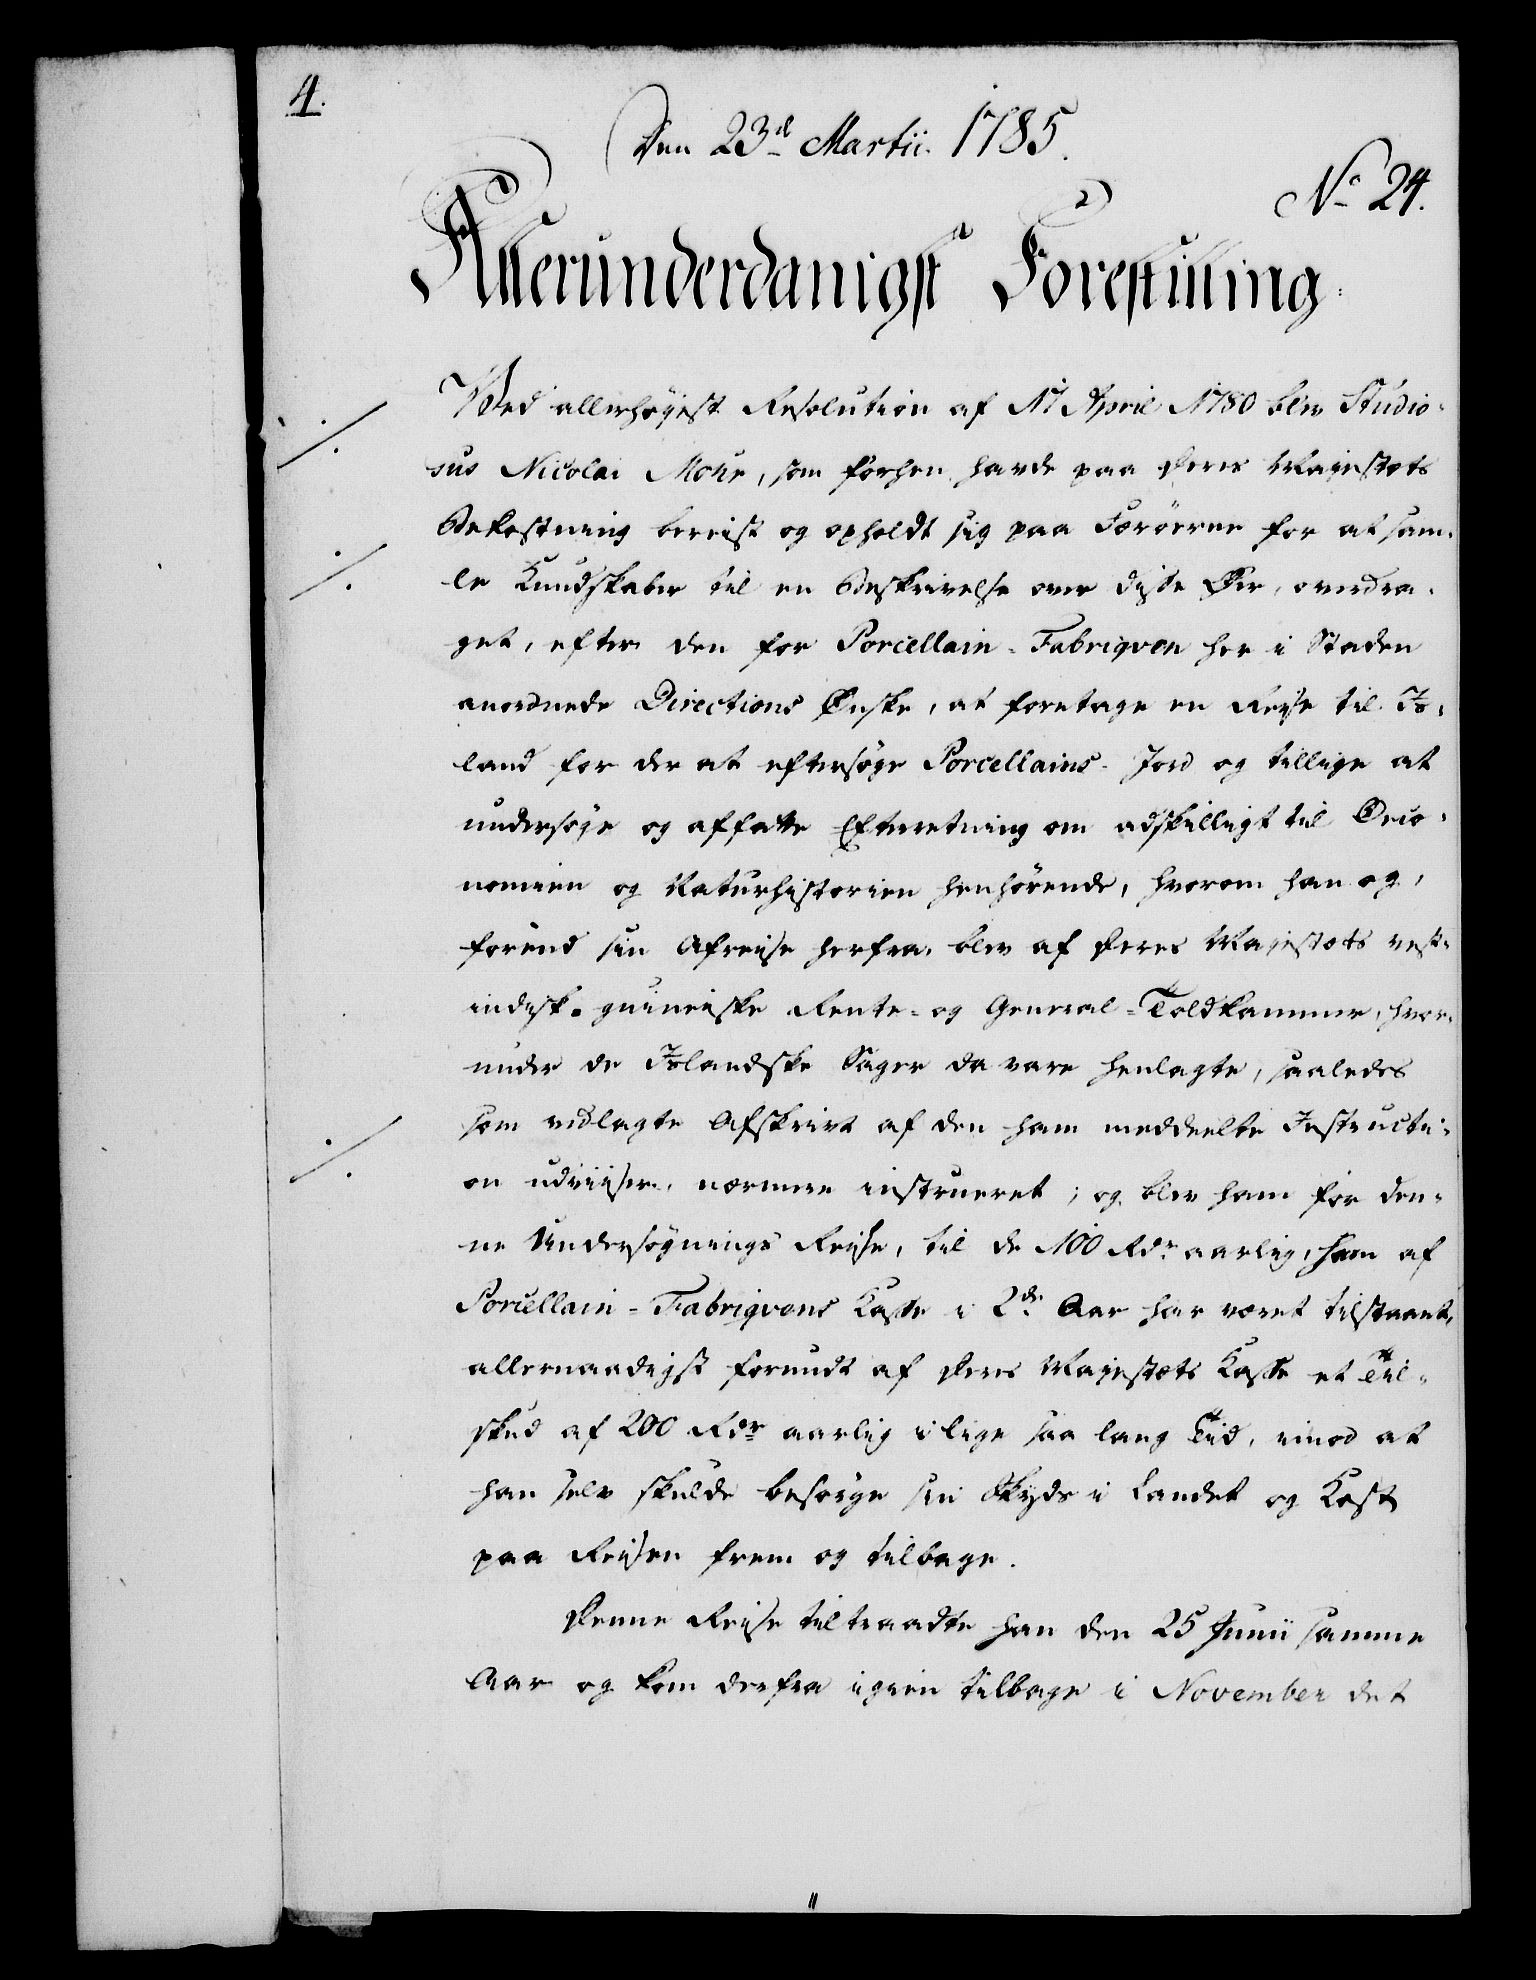 4.
Den 23de Martii 1785.
No 24.
Allerunderdanigst Forestilling.
Ved allerhøyest Resolution af 17 April 1780 blev Studio-
sus Nicolai Mohr, som forhen havde paa Deres Majestæts
Bekostning bereist og opholdt sig paa Færøerne for at sam-
le Kundskaber til en Beskrivelse over disse Øer, overdra-
get, efter den for Porcellain-Fabriqven her i Staden
anordnede Directions Ønske, at foretage en Reyse til Is-
land for der at eftersøge Porcellains-Jord og tillige at
undersøge og affatte Efterretning om adskilligt til Oeco-
nomien og Naturhistorien henhørende, hvorom han og,
forend sin Afreise herfra, blev af Deres Majestæts vest-
indisk-guineiske Rente- og General-Toldkammer, hvor-
under de Islandske Sager da vare henlagte, saaledes
som vedlagte Afskrivt af den ham meddeelte Instructi-
on udviiser, nærmere instrueret; og blev ham for den-
ne Undersøgnings Reise, til de 100 Rdr aarlig, ham af
Porcellain-Fabriqvens Kasse i 2de Aar har været tilstaaet,
allernaadigst forundt af Deres Majestæts Kasse et Til-
skud af 200 Rdr aarlig i lige saa lang Tid, imod at
han selv skulde besørge sin Skyds i Landet og Kost
paa Reisen frem og tilbage.
Denne Reise tiltraadte han den 25 Junii samme
Aar og kom derfra igien tilbage i November det